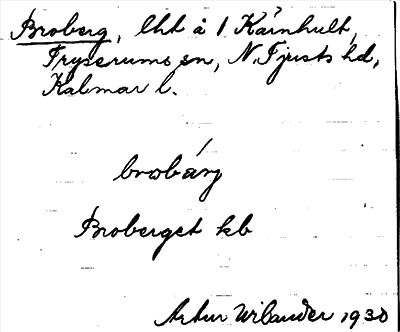 Broberg, lht å 1 Kärnhult,
Tryserums sn, N. Tjusts hd,
Kalmar l.
brobárj
Broberget kb
Artur Wilander 1930